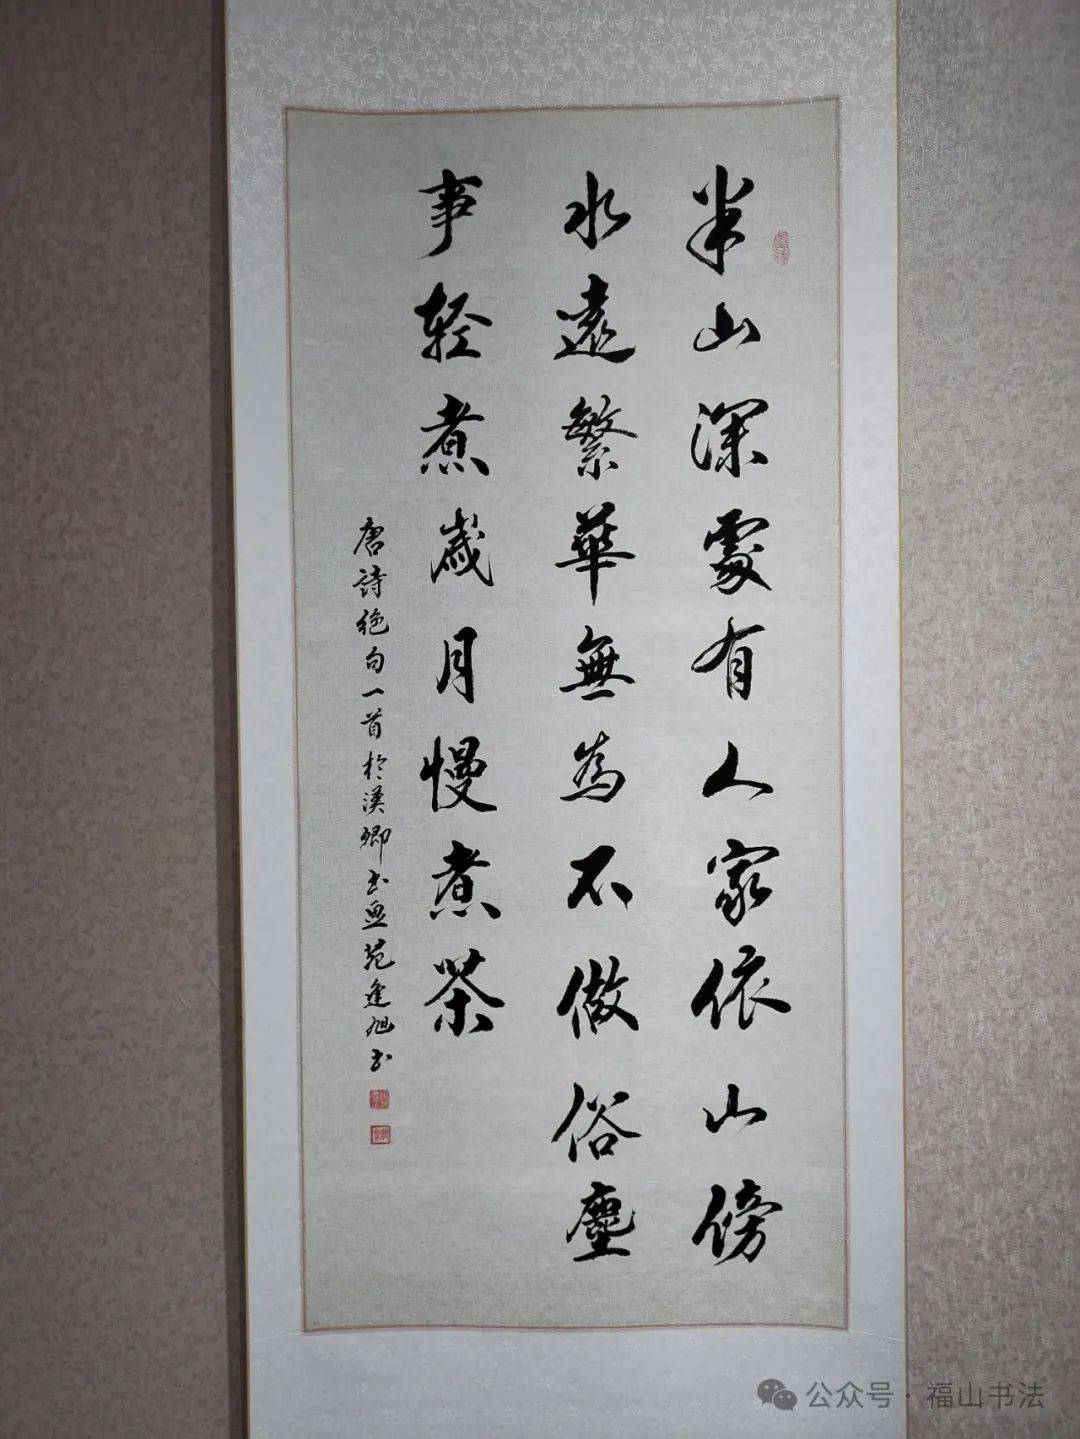 半山深處有人家依山傍
水遠繁華無為不做俗塵
事轻煮歲月慢煮茶
唐詩绝句一首於溪鄉书
逢旭书
公众号·福山书法